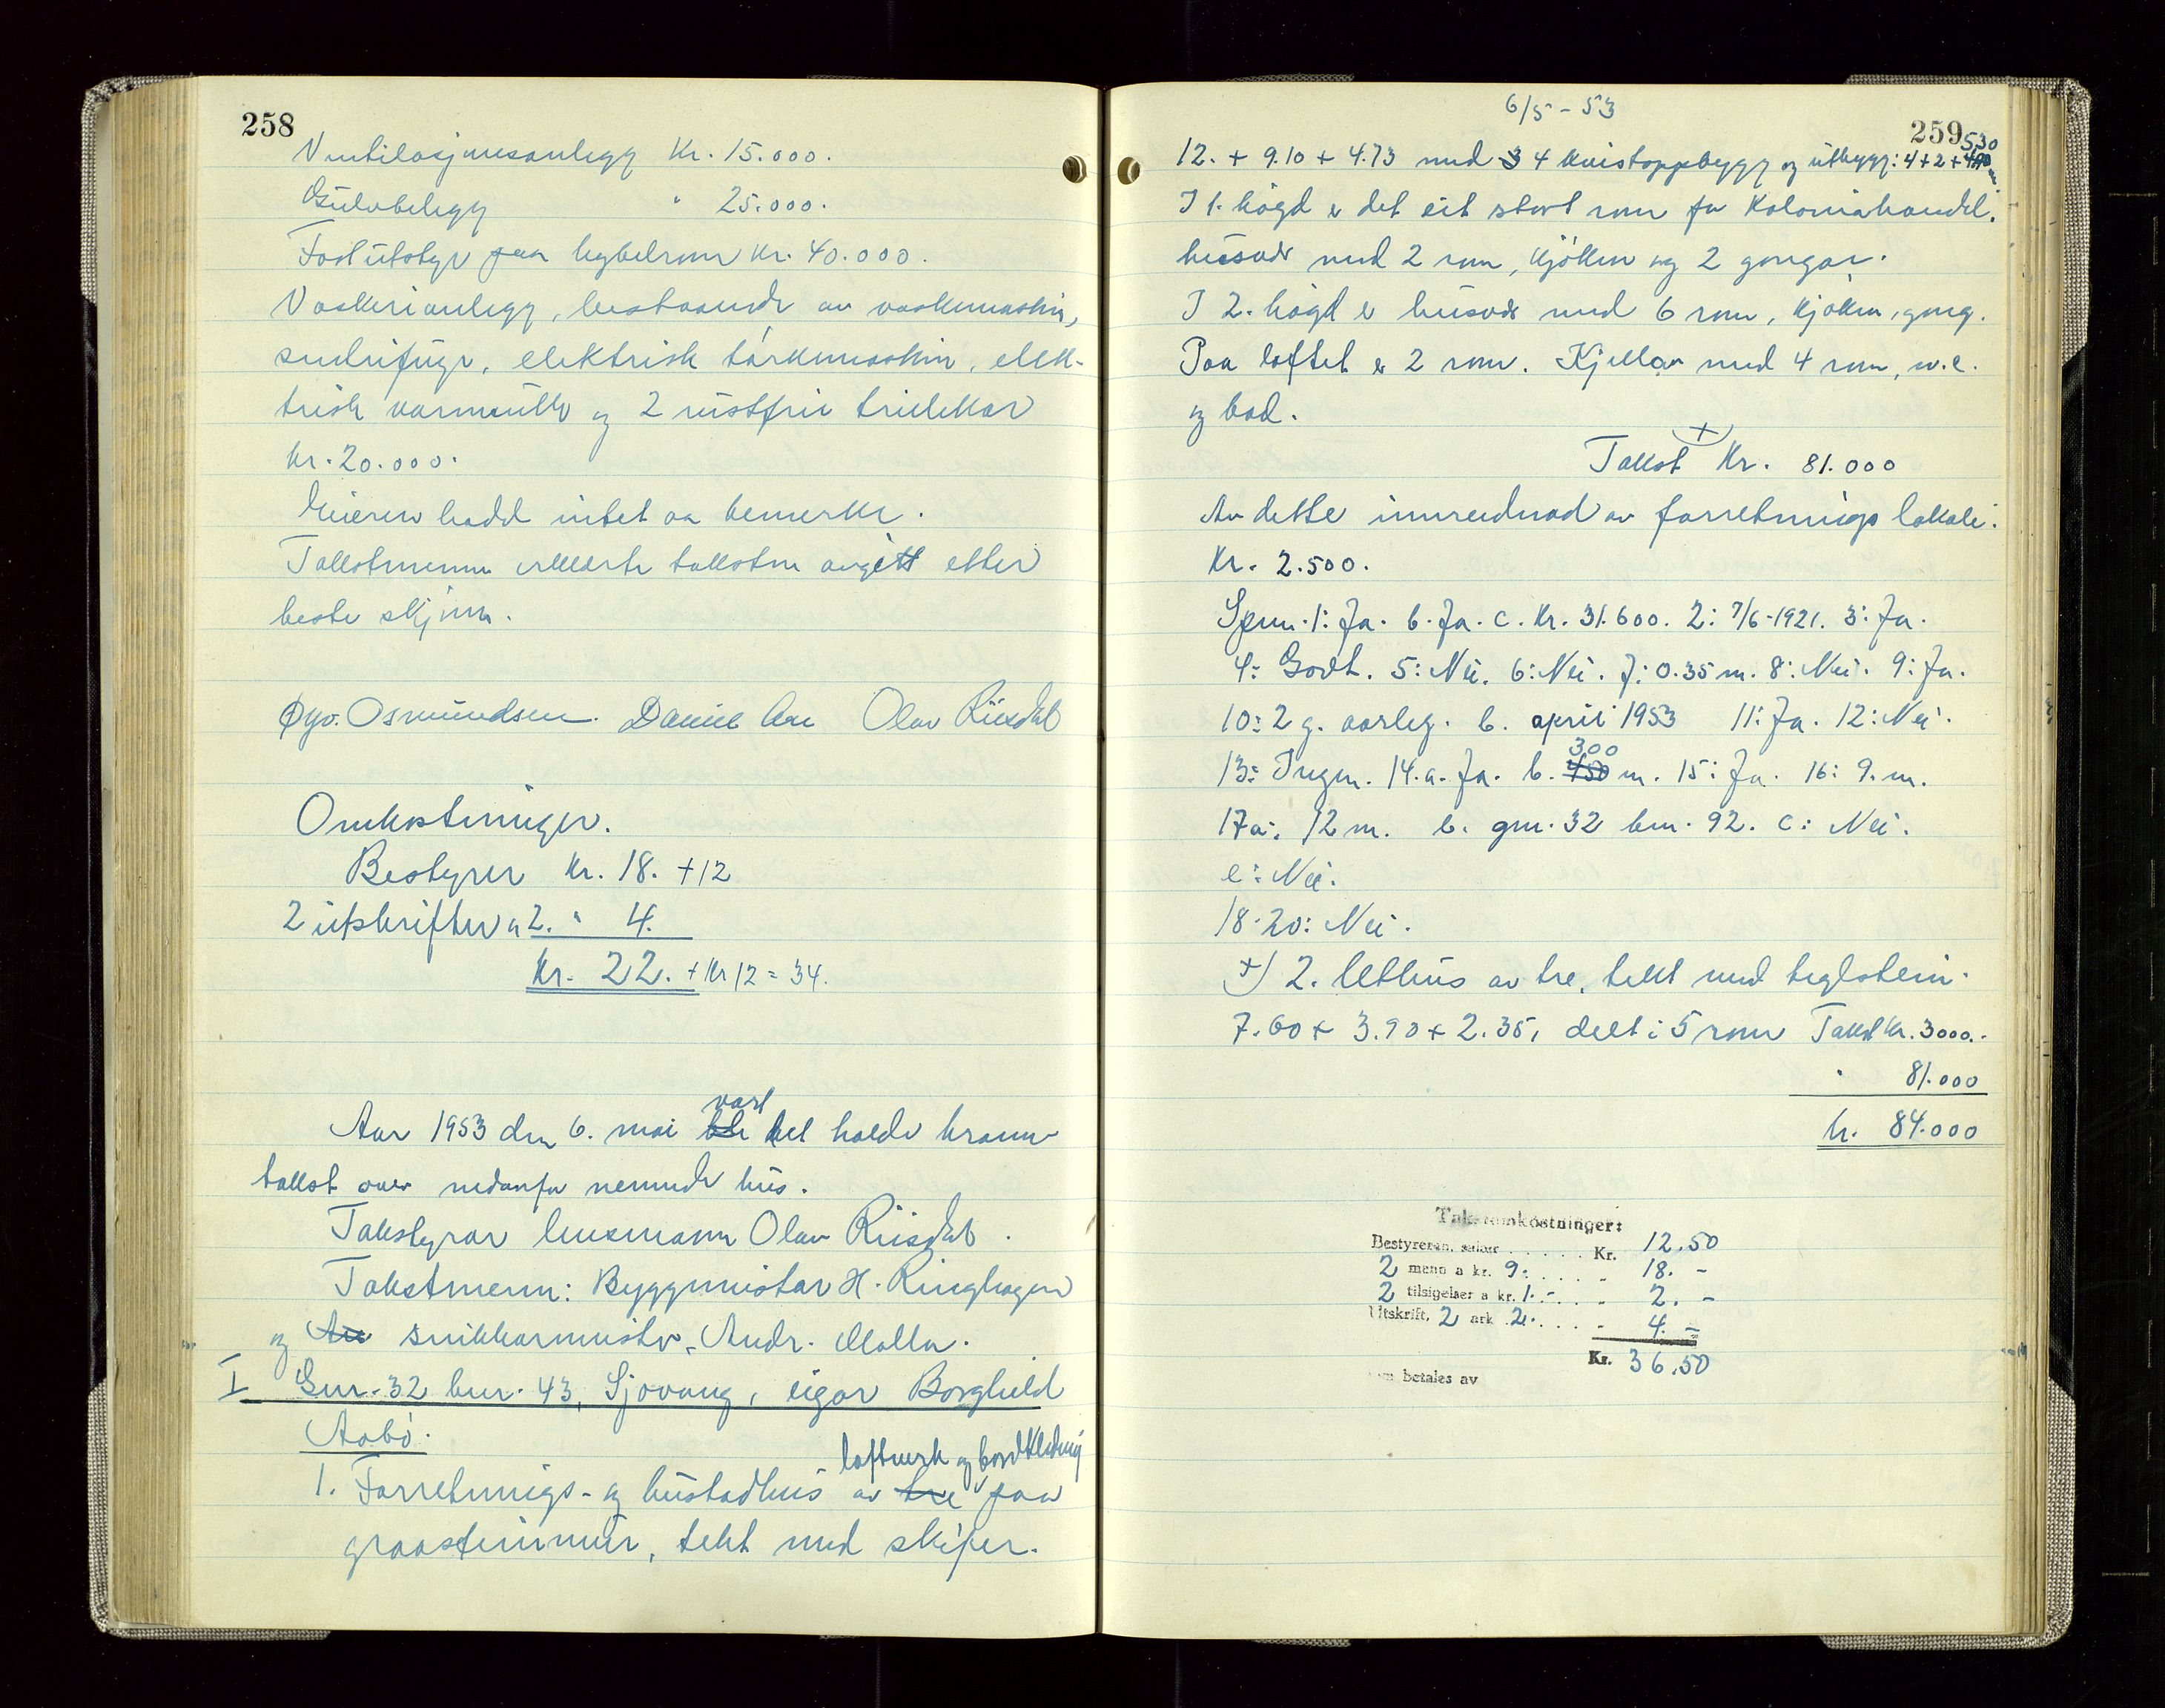 258
Ventilasjonsanlegg Kr. 15.000.
Gulvbelegg " 25.000.
Fast utstyr paa hybelrom Kr. 40.000.
Vaskerianlegg, bestaaende av vaskemaskin,
sentrifuge, elektrisk tørkemaskin, elek-
trisk varmrulle og 2 rustfrie trillekar
Kr. 20.000.
Eieren hadde intet aa bemerke.
Takstmennene erklærte taksten avgitt etter
beste skjønn.
Osmundsen. Daniel Aae Olav Riisdal
Omkostninger.
Bestyrer Kr. 18. +12
2 utskrifter a 2. " 4.
Kr. 22. + Kr 12 = 34.
Aar 1953 den 6. mai vart det halde brann-
takst over nedanfor nemnde hus.
Takstyrar lensmann Olav Riisdal.
Takstmenn: Byggmeistar H. Ringhagen
og snikkarmeister Andr. Molla.
I Gnr. 32 bnr. 43, Sjovang, eigar Borghild
Aabø.
loftverk og bordkledning
1. Forretnings- og bustadhus av tre paa
graasteinmur, tekt med skifer.
6/5 - 53
259
530
12. + 9.10 + 4.73 med 3 4 kvistoppbygg og utbygg: 4+2+
I 1. høgd er det eit stort rom for Kolonialhandel.
husvære med 2 rom, kjøkken og 2 gongar.
I 2. høgd er husvære med 6 rom, kjøkken, gong.
Paa loftet er 2 rom. Kjellar med 4 rom, w.c.
og bad.
+)
Takst Kr. 81.000
Av dette innreidnad av forretningslokale:
Kr. 2.500.
Spm. 1: Ja. b. Ja. c. Kr. 31.600. 2: 7/6-1921. 3: Ja.
4: Godt. 5: Nei. 6: Nei. 7: 0.35 m. 8: Nei. 9: Ja.
10: 2 g. aarleg. b. april 1953 11: Ja. 12: Nei.
300
13: Ingen. 14. a. Ja. b. 450 m. 15: Ja. 16: 9. m.
17a: 12 m. b. gnr. 32 bnr. 92. c: Nei.
e: Nei.
18-20: Nei.
+) 2. Uthus av tre, tekt med teglstein.
7.60 + 3.90 + 2.35, delt i 5 rom Takst Kr. 3000.-
" 81.000
kr. 84.000
Takstomkostninger:
Bestyreren, salær . . . . . Kr. 12.50
2 menn a kr. 9.- . . . . " 18. -
2 tilsigelser a kr. 1.- . . . " 2. -
Utskrift, 2 ark 2.- . . . . " 4. -
Kr. 36.50
betales av